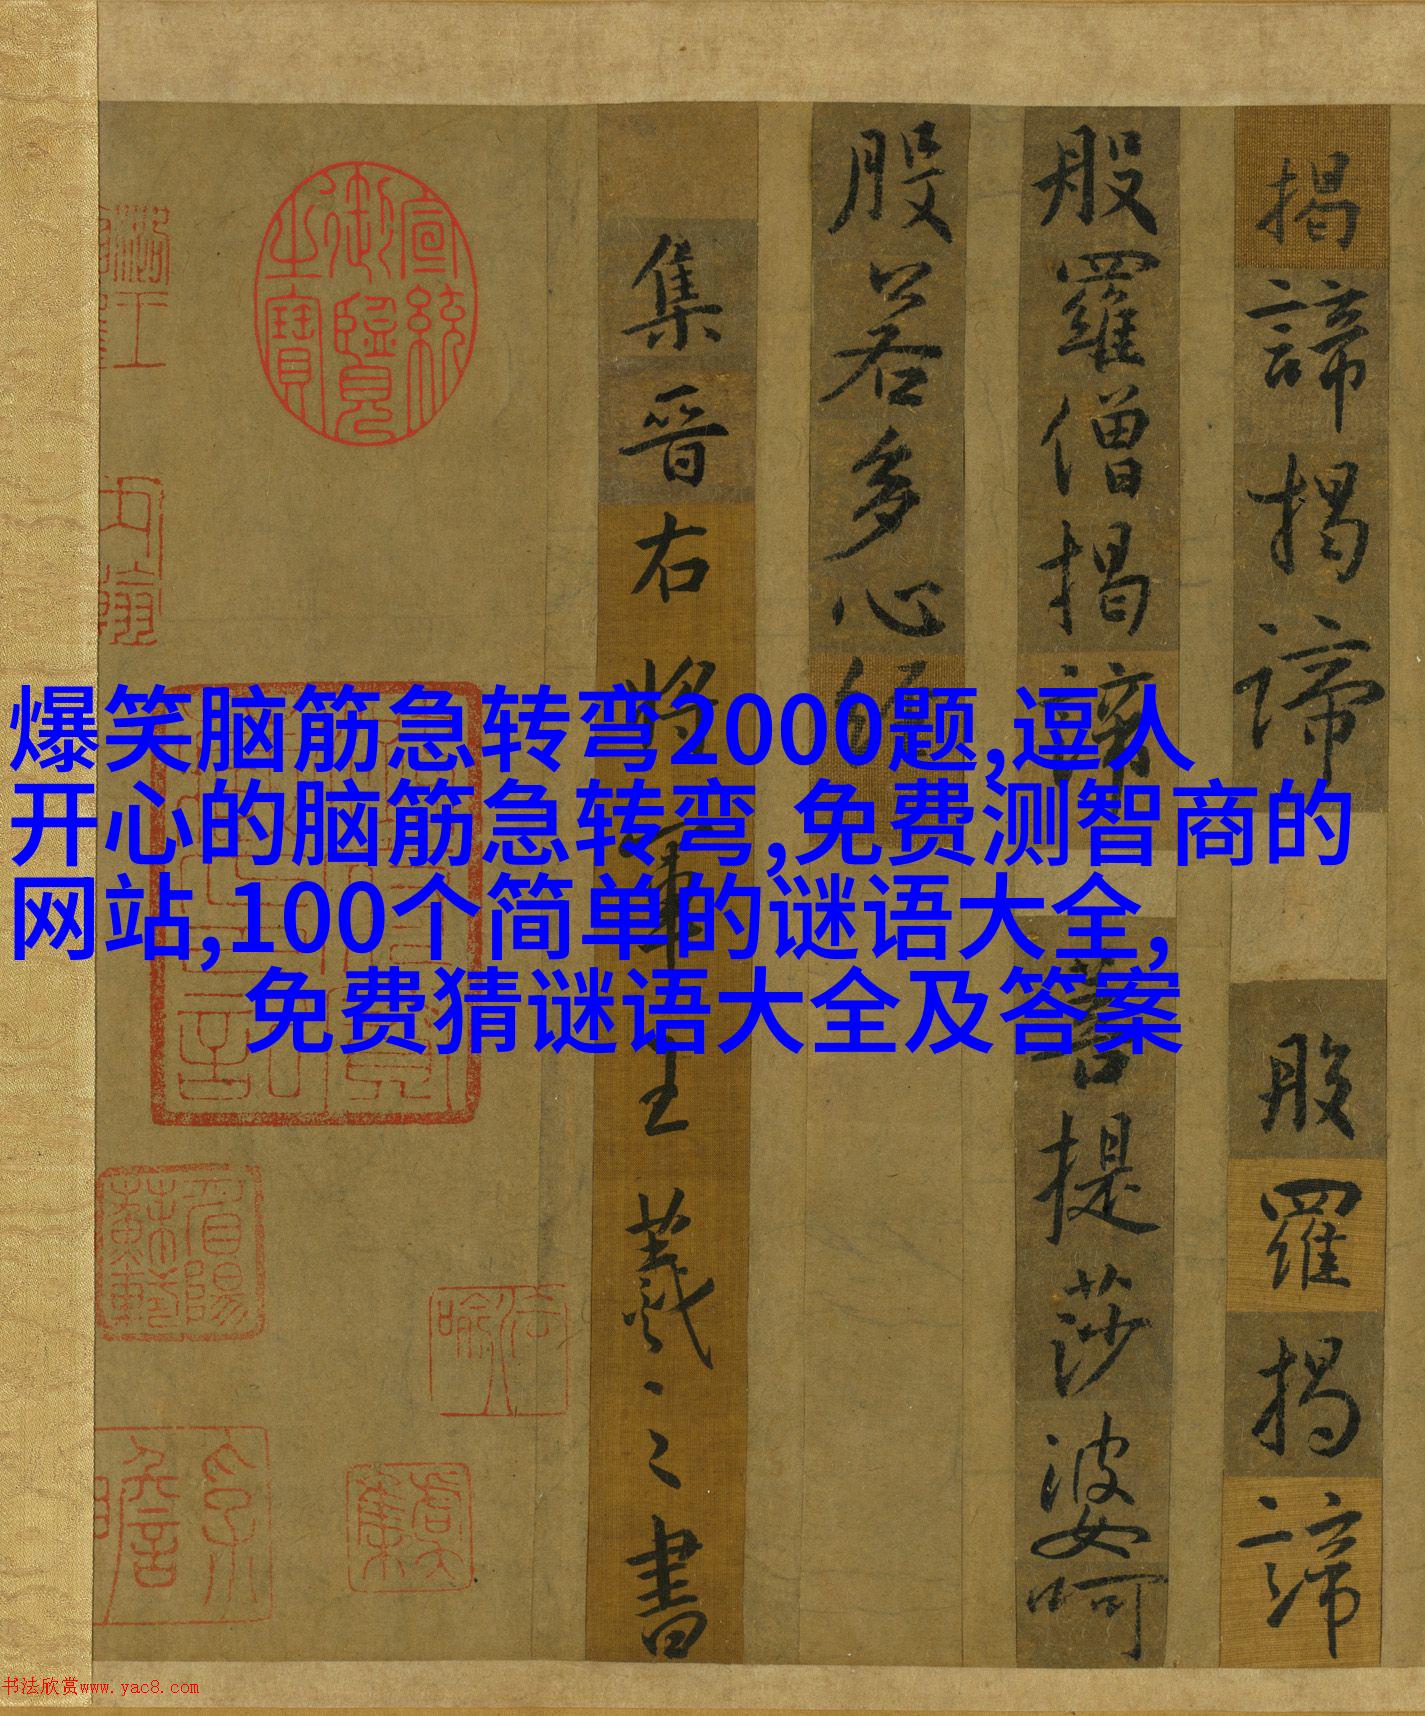 揭諦揭諦 般羅揭諦
般羅僧揭諦 菩提莎婆呵
般若多心經
集晉右將軍王羲之書
宣統御覽之寶
爆笑脑筋急转弯2000题,逗人
开心的脑筋急转弯,免费测智商的
网站,100个简单的谜语大全,
免费猜谜语大全及答案
书法欣赏www.yac8.com